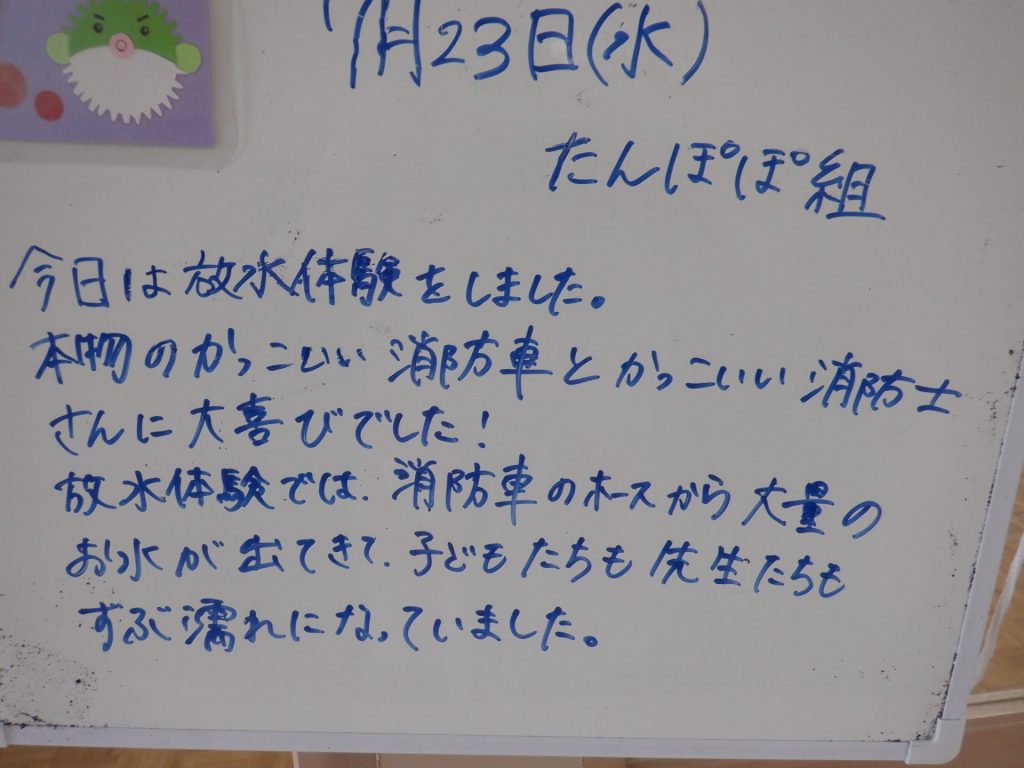 7月23日(水)
たんぽぽ組
今日は放水体験をしました。
本物のかっこいい消防車とかっこいい消防士
さんに大喜びでした!
放水体験では、消防車のホースから大量の
お水が出てきて、子どもたちも先生たちも
ずぶ濡れになっていました。